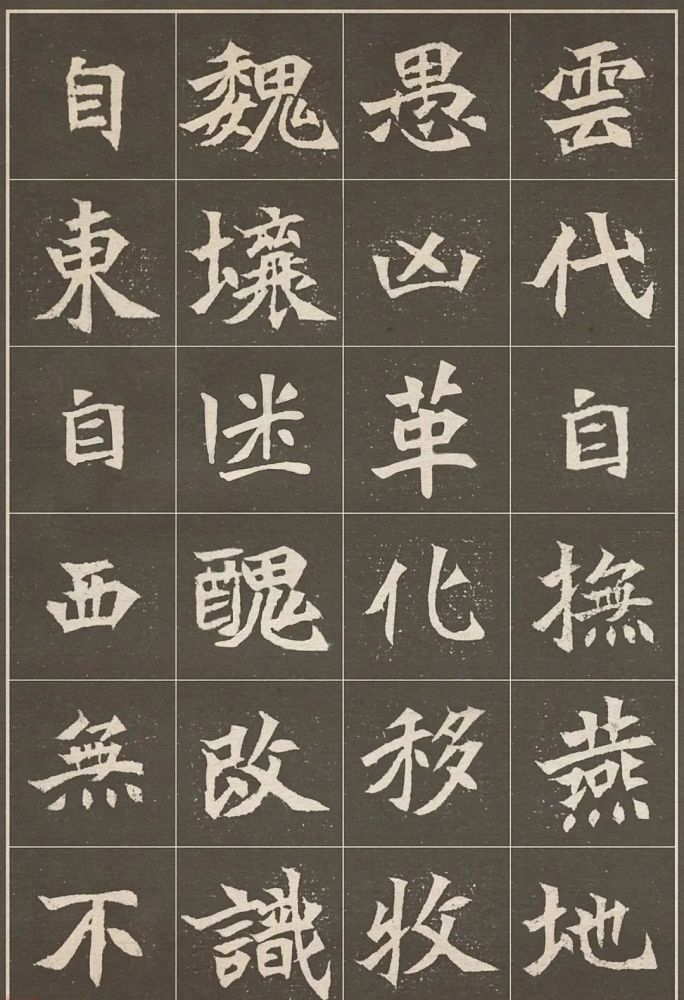 雲代自撫燕地
愚凶革化移牧
魏壤迷醜改識
自東自西無不